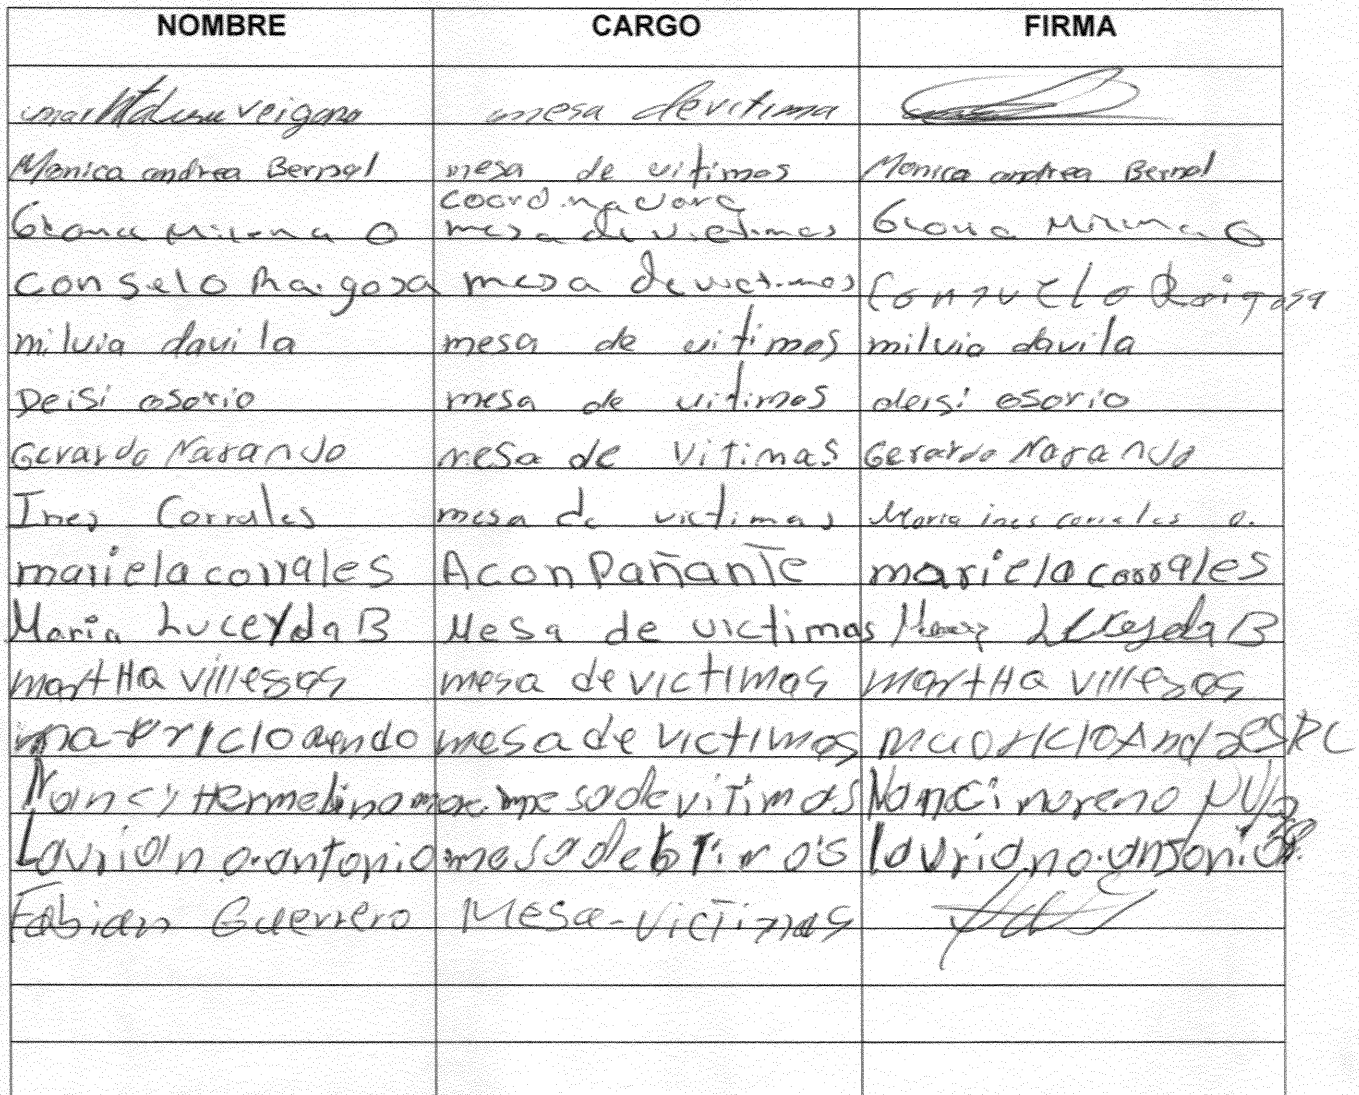 NOMBRE CARGO FIRMA
mesa devitima
Monica andrea Bernal mesa de vitimas Monica andrea Bernal
coordinadora
Milena O mesa de victimas
conselo Raigosa mesa de victimas Consuelo Raigosa
milvia davila mesa de vitimas milvia davila
Deisi osorio mesa de vitimas deisi osorio
Gerardo Naranjo mesa de vitimas Gerardo Naranjo
Ines Corrales mesa de victimas Maria ines corrales o.
mariela corrales Aconpañante mariela corrales
Maria Luceyda B Mesa de victimas Luceyda B
martHa villegas mesa de victimas martHa villegas
mesa de victimas
Nancy Hermelina mesa de vitimas Nanci moreno
Lauriano.antonio lauriano.antonio
Fabian Guerrero Mesa-Victimas